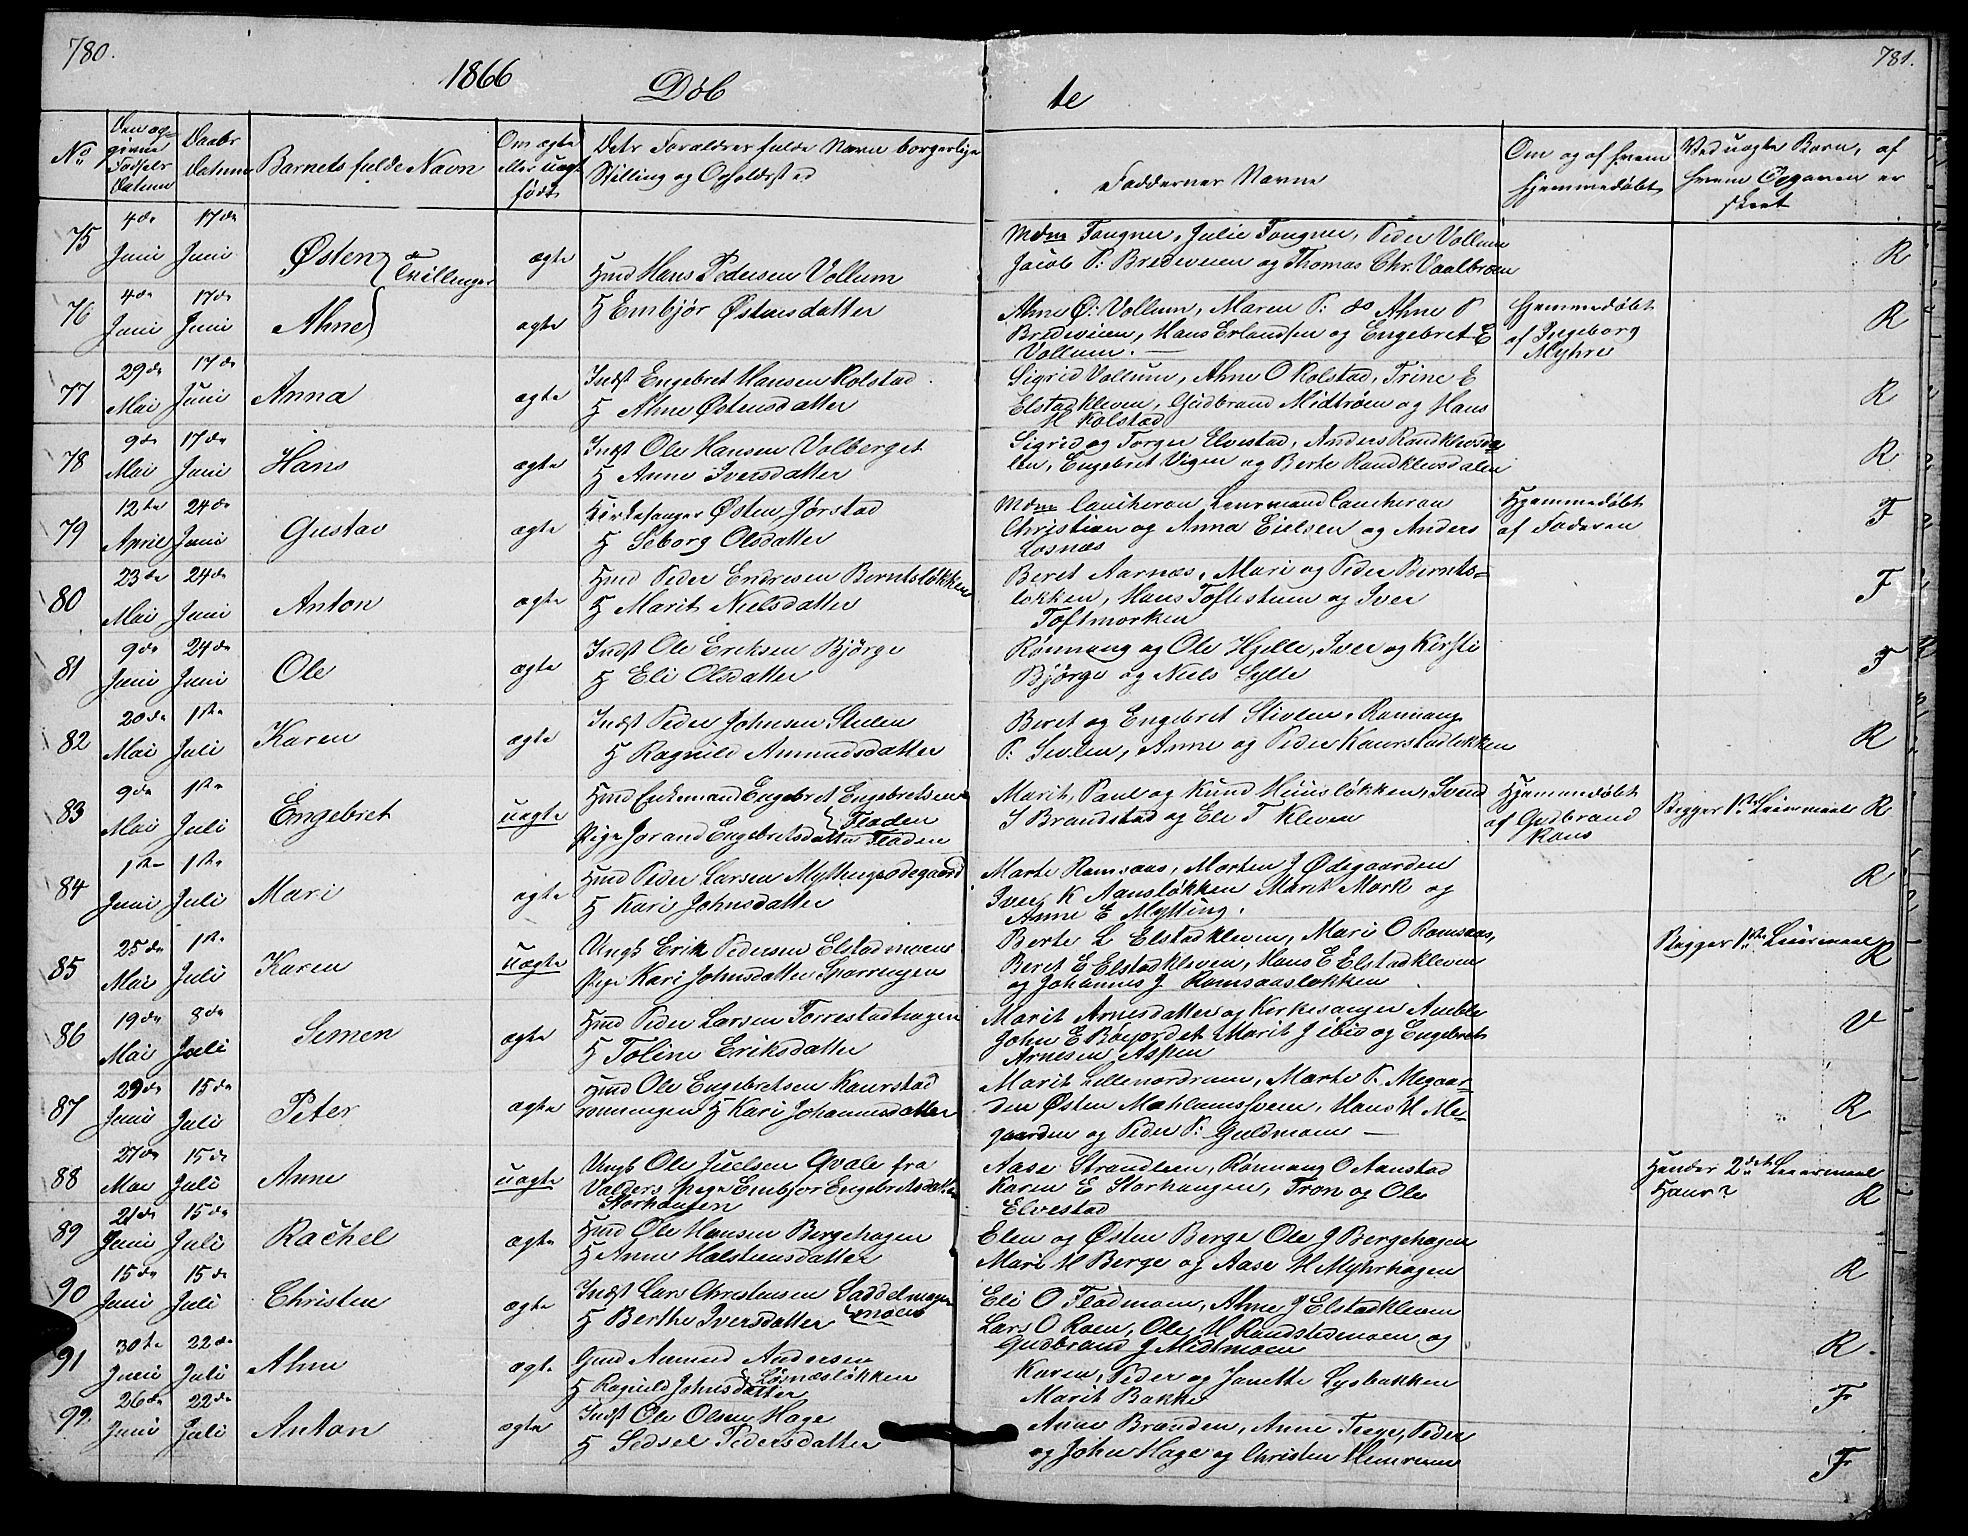 780.
1866
Døb
te
781.
No
Den op-
givne
Fødsels
Datum
Daabs
Datum
Barnets fulde Navn
Om ægte
eller uægte
født
Dets Forældres fulde Navn borgerlige
Stilling og Opholdsted
Faddernes Navne
Om og af hvem
hjemmedøbt
Ved uægte Børn, af
hvem Opgaven er
skeet
75
4de Juni
17de Juni
Østen
Tvillinger
ægte
Hmd Hans Pedersen Vollum
Mdm Fougner, Julie Fougner, Peder Vollum
Jacob P. Bredeveien og Thomas Chr. Vaalbroen
R
76
4de Juni
17de Juni
Ahne
ægte
H Embjør Østensdatter
Ahne Ø: Vollum, Maren P: do Ahne P
Bredeveien, Hans Erlandsen og Engebret E
Vollum.
Hjemmedøbt
af Ingeborg
Myhre
R
77
29de Mai
17de Juni
Anna
ægte
Indst Engebret Hansen Kolstad
H Ahne Østensdatter
Sigrid Vollum, Ahne O Kolstad, Trine E
Elstadkleven, Gudbrand Midtrøen og Hans
H Kolstad
R
78
9de Mai
17de Juni
Hans
ægte
Indst Ole Hansen Volberget
H Anne Iversdatter
Sigrid og Torger Elvestad, Anders Randklevsda-
len, Engebret Vigen og Berte Randklevsdalen
R
79
12te April
24de Juni
Gustav
ægte
Kirkesanger Østen Jørstad
H Seborg Olsdatter
Mdm Cautheron Lensmand Cautheron
Christian og Anna Eielsen og Anders
Losnæs
Hjemmedøbt
af Faderen
F
80
23de Mai
24de Juni
Anton
ægte
Hmd Peder Endresen Berntsløkken
H Marit Nielsdatter
Beret Aarnæs, Mari og Peder Bernts-
løkken, Hans Toftestuen og Iver
Toftmorken
F
81
9de Juni
24de Juni
Ole
ægte
Indst Ole Eriksen Bjørge
H Eli Olsdatter
Rønnaug og Ole Hjelle, Iver og Kirsti
Bjørge og Niels Sylte
F
82
20de Mai
1ste Juli
Karen
ægte
Indst Peder Johnsen Stulen
H Ragnild Amundsdatter
Beret og Engebret Stivlen, Rønnaug
P: Sivlen, Anne og Peder Kaurstadløkken
R
83
9de Mai
1ste Juli
Engebret
uægte
Hmd Enkemand Engebret Engebretsen
Fladen
Pige Jorand Engebretsdatter Fladen
Marit, Paul og Knud Huusløkken, Svend
S Brandstad og Ele T Kleven
Hjemmedøbt
af Gudbrand
Raus
Begges 1ste Leiermaal
R
84
1ste Juni
1ste Juli
Mari
ægte
Hmd Peder Larsen Myttingsødegaard
H Kari Johnsdatter
Marte Ramsaas, Morten J Ødegaarden
Iver K Aansløkken Marit Mork og
Anne E Mytting.
R
85
25de Mai
1ste Juli
Karen
uægte
Ungk Erik Pedersen Elstadmoen
Pige Kari Johnsdatter Sparringen
Berte L Elstadkleven, Mari O Ramsaas,
Beret E Elstadkleven, Hans E Elstadkleven
og Johannes J Ramsaasløkken
Begges 1ste Leiermaal
R
86
19de Mai
8de Juli
Semen
ægte
Hmd Peder Larsen Torrestadhagen
H Toline Eriksdatter
Marit Arnesdatter og Kirkesanger Amble
John E Bøejordet Marit J ibid og Engebret
Arnesen Aspen
V
87
29de Juni
15de Juli
Peter
ægte
Hmd Ole Engebretsen Kaurstad
rønningen H Kari Johannesdatter
Marit Lillenordrum, Marte P. Megaar-
den Østen Mæhlumssveen, Hans H Me-
gaarden og Peder P: Guldmoen
R
88
27de Mai
15de Juli
Anne
uægte
Ungk Ole Juelsen Qvale fra
Valders Pige Embjør Engebretsdatter
Storhaugen
Aase Strandleen, Rønnaug O Aanstad
Karen E Storhaugen, Tron og Ole
Elvestad
Hendes 2det Leiermaal
Hans?
R
89
21de Juni
15de Juli
Rachel
ægte
Hmd Ole Hansen Bergehagen
H Anne Halstensdatter
Elen og Østen Berge Ole J Bergehagen
Mari H Berge og Aase H Myhrhagen
R
90
15de Juni
15de Juli
Christen
ægte
Indst Lars Christensen Saddelmager
moen
H Berthe Iversdatter
Eli O Flodmoen, Ahne J Elstadkleven
Lars O Roen, Ole H Randstadmoen og
Gudbrand J Midtmoen
R
91
30te Juni
22de Juli
Ahne
ægte
Gmd Amund Andersen
Losnæsløkken
H Ragnild Johnsdatter
Karen, Peder og Janette Lysbakken
Marit Bakke
F
92
26de Juni
22de Juli
Anton
ægte
Indst Ole Olsen Hage
H Sedsel Pedersdatter
Anne Brænden, Anne Teege, Peder
og John Hage og Christen
F